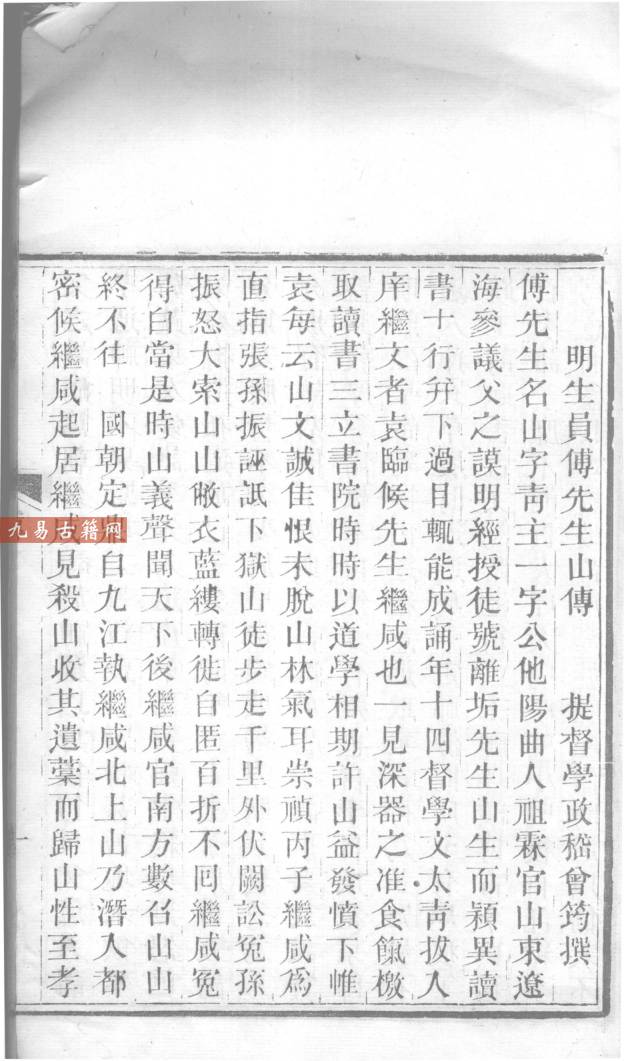 明生員傅先生山傳 提督學政嵇曾筠撰
傅先生名山字靑主一字公他陽曲人祖霖官山東遼
海參議父之謨明經授徒號離垢先生山生而穎異讀
書十行幷下過目輒能成誦年十四督學文太靑拔入
庠繼文者袁臨候先生繼咸也一見深器之准食餼檄
取讀書三立書院時時以道學相期許山益發憤下帷
袁每云山文誠佳恨未脫山林氣耳崇禎丙子繼咸爲
直指張孫振誣詆下獄山徒步走千里外伏闕訟冤孫
振怒大索山山敝衣藍縷轉徙自匿百折不回繼咸冤
得白當是時山義聲聞天下後繼咸官南方數召山山
終不往 國朝定 自九江執繼咸北上山乃潛入都
密候繼咸起居繼咸見殺山收其遺藁而歸山性至孝
九易古籍网